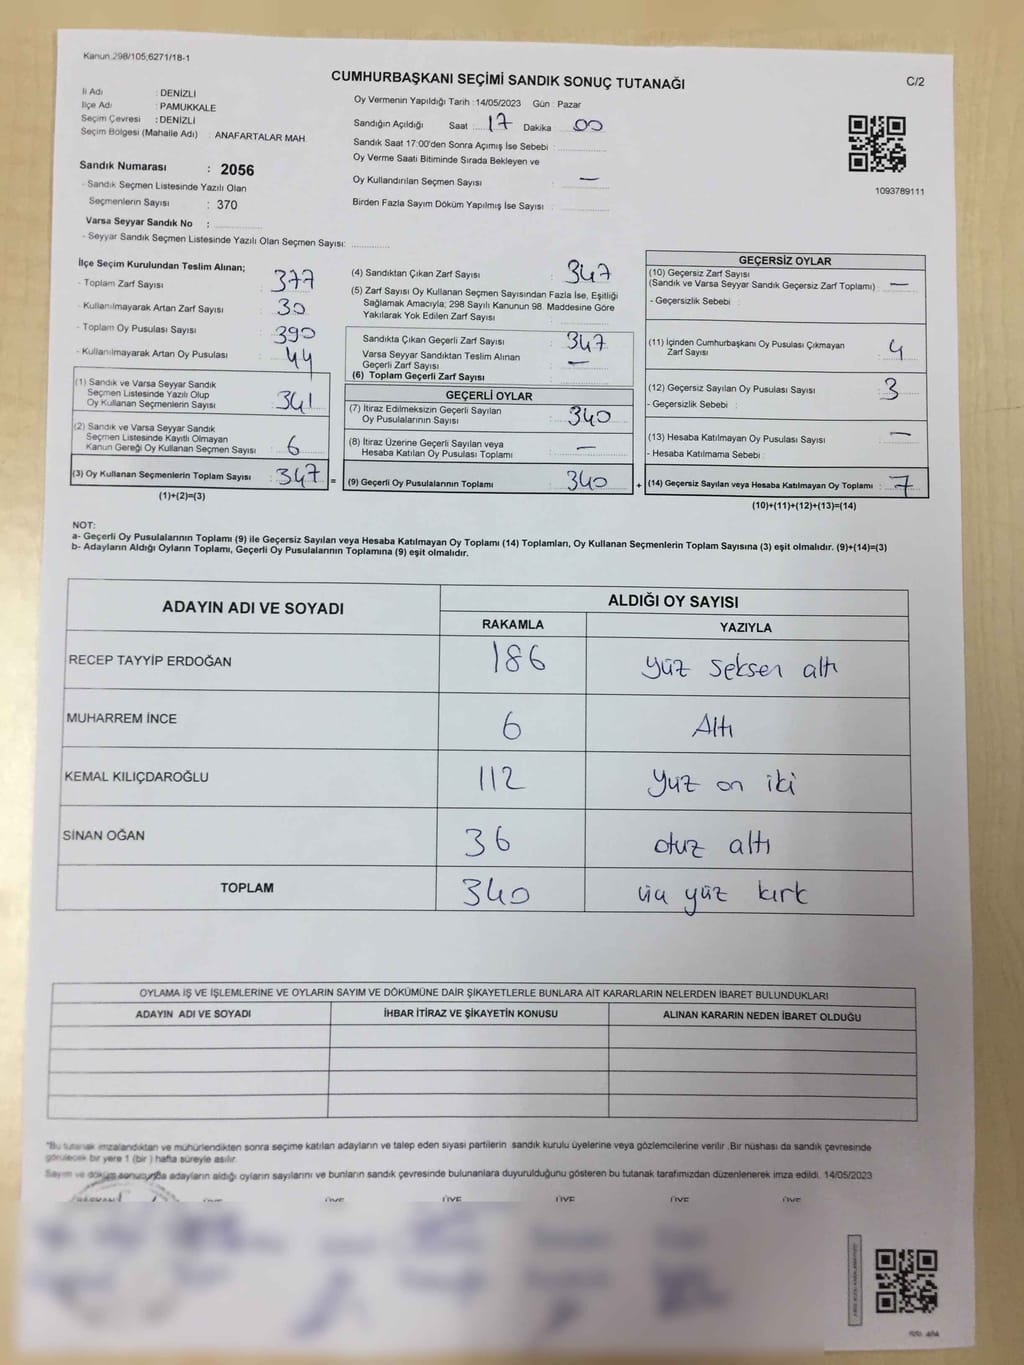 Kanun 298/105,6271/18-1
CUMHURBAŞKANI SEÇİMİ SANDIK SONUÇ TUTANAĞI
C/2
İl Adı : DENİZLİ
İlçe Adı : PAMUKKALE
Seçim Çevresi : DENİZLİ
Seçim Bölgesi (Mahalle Adı) : ANAFARTALAR MAH
Sandık Numarası : 2056
- Sandık Seçmen Listesinde Yazılı Olan
Seçmenlerin Sayısı : 370
Varsa Seyyar Sandık No :
- Seyyar Sandık Seçmen Listesinde Yazılı Olan Seçmen Sayısı:
Oy Vermenin Yapıldığı Tarih : 14/05/2023 Gün : Pazar
Sandığın Açıldığı Saat : 17 Dakika 00
Sandık Saat 17:00'den Sonra Açımış İse Sebebi :
Oy Verme Saati Bitiminde Sırada Bekleyen ve
Oy Kullandırılan Seçmen Sayısı : —
Birden Fazla Sayım Döküm Yapılmış İse Sayısı :
1093789111
İlçe Seçim Kurulundan Teslim Alınan;
- Toplam Zarf Sayısı : 377
- Kullanılmayarak Artan Zarf Sayısı : 30
- Toplam Oy Pusulası Sayısı : 390
- Kullanılmayarak Artan Oy Pusulası : 44
(1) Sandık ve Varsa Seyyar Sandık
Seçmen Listesinde Yazılı Olup
Oy Kullanan Seçmenlerin Sayısı : 341
(2) Sandık ve Varsa Seyyar Sandık
Seçmen Listesinde Kayıtlı Olmayan
Kanun Gereği Oy Kullanan Seçmen Sayısı : 6
(3) Oy Kullanan Seçmenlerin Toplam Sayısı : 347 =
(1)+(2)=(3)
(4) Sandıktan Çıkan Zarf Sayısı : 347
(5) Zarf Sayısı Oy Kullanan Seçmen Sayısından Fazla İse, Eşitliği
Sağlamak Amacıyla; 298 Sayılı Kanunun 98. Maddesine Göre
Yakılarak Yok Edilen Zarf Sayısı :
Sandıkta Çıkan Geçerli Zarf Sayısı : 347
Varsa Seyyar Sandıktan Teslim Alınan
Geçerli Zarf Sayısı : —
(6) Toplam Geçerli Zarf Sayısı :
GEÇERLİ OYLAR
(7) İtiraz Edilmeksizin Geçerli Sayılan
Oy Pusulalarının Sayısı : 340
(8) İtiraz Üzerine Geçerli Sayılan veya
Hesaba Katılan Oy Pusulası Toplamı : —
(9) Geçerli Oy Pusulalarının Toplamı : 340 +
GEÇERSİZ OYLAR
(10) Geçersiz Zarf Sayısı
(Sandık ve Varsa Seyyar Sandık Geçersiz Zarf Toplamı) : —
- Geçersizlik Sebebi :
(11) İçinden Cumhurbaşkanı Oy Pusulası Çıkmayan
Zarf Sayısı : 4
(12) Geçersiz Sayılan Oy Pusulası Sayısı : 3
- Geçersizlik Sebebi :
(13) Hesaba Katılmayan Oy Pusulası Sayısı : —
- Hesaba Katılmama Sebebi :
(14) Geçersiz Sayılan veya Hesaba Katılmayan Oy Toplamı : 7
(10)+(11)+(12)+(13)=(14)
NOT:
a- Geçerli Oy Pusulalarının Toplamı (9) ile Geçersiz Sayılan veya Hesaba Katılmayan Oy Toplamı (14) Toplamları, Oy Kullanan Seçmenlerin Toplam Sayısına (3) eşit olmalıdır. (9)+(14)=(3)
b- Adayların Aldığı Oyların Toplamı, Geçerli Oy Pusulalarının Toplamına (9) eşit olmalıdır.
ADAYIN ADI VE SOYADI
ALDIĞI OY SAYISI
RAKAMLA YAZIYLA
RECEP TAYYİP ERDOĞAN 186 yüz seksen altı
MUHARREM İNCE 6 Altı
KEMAL KILIÇDAROĞLU 112 Yüz on iki
SİNAN OĞAN 36 otuz altı
TOPLAM 340 üç yüz kırk
OYLAMA İŞ VE İŞLEMLERİNE VE OYLARIN SAYIM VE DÖKÜMÜNE DAİR ŞİKAYETLERLE BUNLARA AİT KARARLARIN NELERDEN İBARET BULUNDUKLARI
ADAYIN ADI VE SOYADI İHBAR İTİRAZ VE ŞİKAYETİN KONUSU ALINAN KARARIN NEDEN İBARET OLDUĞU
*Bu tutanak imzalandıktan ve mühürlendikten sonra seçime katılan adayların ve talep eden siyasi partilerin sandık kurulu üyelerine veya gözlemcilerine verilir. Bir nüshası da sandık çevresinde
görülecek bir yere 1 (bir) hafta süreyle asılır.
Sayım ve döküm sonucunda adayların aldığı oyların sayılarını ve bunların sandık çevresinde bulunanlara duyurulduğunu gösteren bu tutanak tarafımızdan düzenlenerek imza edildi. 14/05/2023
BAŞKAN ÜYE ÜYE ÜYE ÜYE ÜYE ÜYE